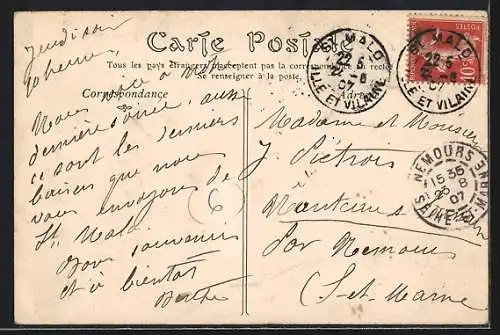 Jeudi soir
10 heures
Carte Postale
Tous les pays étrangers n'acceptent pas la correspondance au recto
Se renseigner à la poste.
Correspondance
Adresse
Nous voici à ma
dernière soirée, aussi
ce sont les derniers
baisers que nous
vous envoyons de
St Malo
Bon souvenir
et à bientôt
Berthe
6
Madame et Monsieur
J. Piétrois
Par Nemours
(S-et-Marne
ST MALO
22 5
22 -8
07
ILLE ET VILAINE
ST MALO
22 5
22 -8
07
ILLE ET VILAINE
POSTES
10
NEMOURS
15 35
23 8
07
SEINE-ET-MARNE